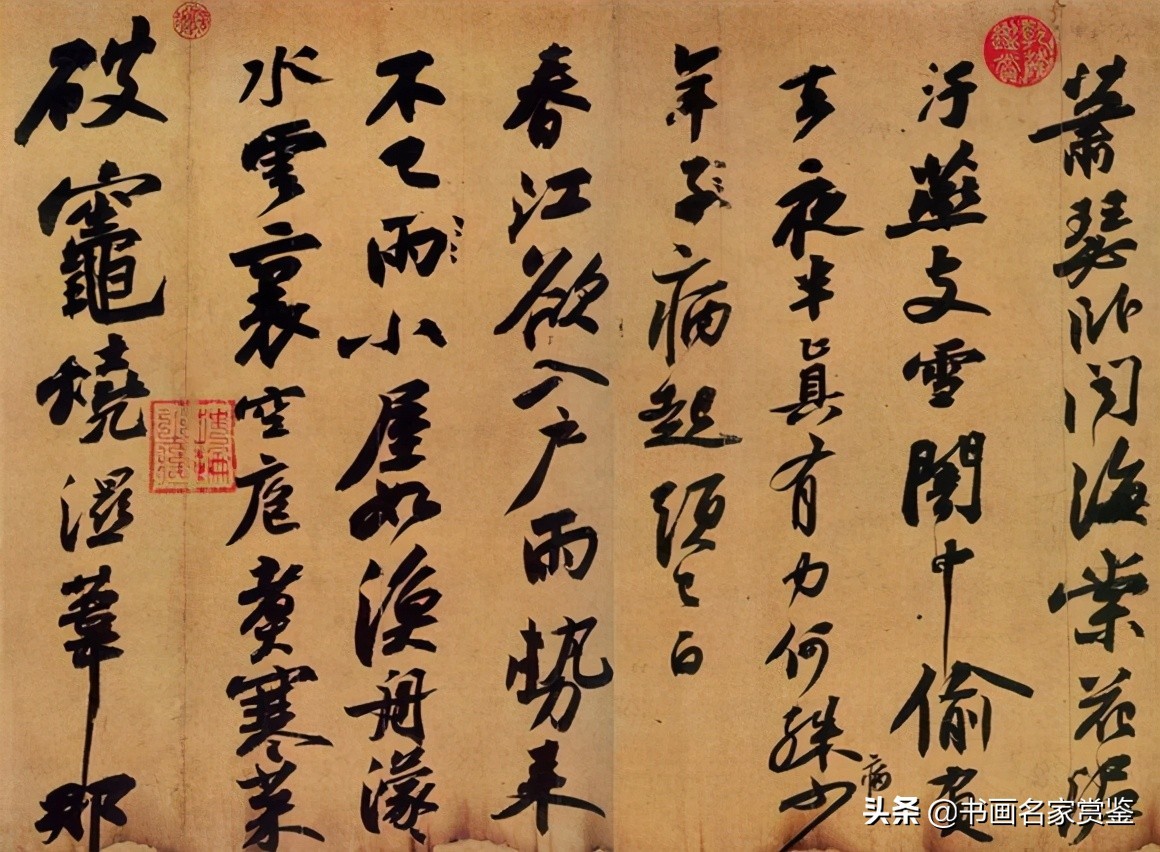 蕭瑟臥聞海棠花泥
汙燕支雪闇中偷負
去夜半真有力何殊少
病
年子病起頭已白
春江欲入戶雨勢來
不已雨小屋如漁舟濛〻
水雲裏空庖煮寒菜
破竈燒濕葦那
乾隆鑑賞
头条 @书画名家赏鉴